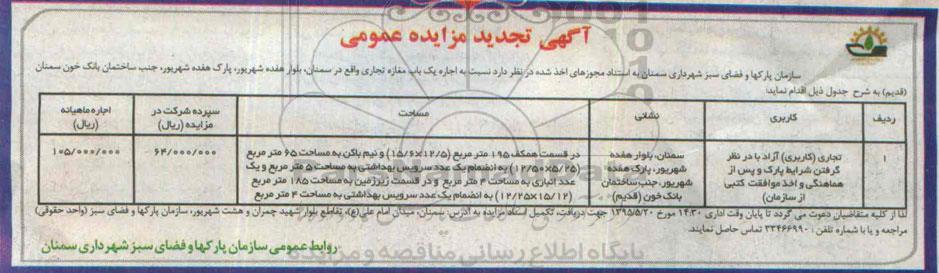 آگهی تجدید مزایده عمومی
سازمان پارکها و فضای سبز شهرداری سمنان به استناد مجوزهای اخذ شده در نظر دارد نسبت به اجاره یک باب مغازه تجاری واقع در سمنان، بلوار هفده شهریور، پارک هفده شهریور، جنب ساختمان بانک خون سمنان
(قدیم) به شرح جدول ذیل اقدام نماید:
ردیف
کاربری
نشانی
مساحت
سپرده شرکت در
مزایده (ریال)
اجاره ماهیانه
(ریال)
۱
تجاری (کاربری) آزاد با در نظر
گرفتن شرایط پارک و پس از
هماهنگی و اخذ موافقت کتبی
از سازمان)
سمنان، بلوار هفده
شهریور، پارک هفده
شهریور، جنب ساختمان
بانک خون (قدیم)
در قسمت همکف ۱۹۵ متر مربع (۱۵/۶×۱۲/۵) و نیم بالکن به مساحت ۶۵ متر مربع
(۱۲/۵۰×۵/۲۵) به انضمام یک عدد سرویس بهداشتی به مساحت ۵ متر مربع و یک
عدد انباری به مساحت ۴ متر مربع و در قسمت زیرزمین به مساحت ۱۸۵ متر مربع
(۱۲/۲۵×۱۵/۱۲) به انضمام یک عدد سرویس بهداشتی به مساحت ۴ متر مربع
۶۴/۰۰۰/۰۰۰
۱۰۵/۰۰۰/۰۰۰
لذا از کلیه متقاضیان دعوت می گردد تا پایان وقت اداری ۱۴:۳۰ مورخ ۱۳۹۵/۵/۲۰ جهت دریافت، تکمیل اسناد مزایده به آدرس: سمنان، میدان امام علی(ع)، تقاطع بلوار شهید چمران و هشت شهریور، سازمان پارکها و فضای سبز (واحد حقوقی)
مراجعه و یا با شماره تلفن: ۳۳۴۶۶۹۹۰ تماس حاصل نمایند.
روابط عمومی سازمان پارکها و فضای سبز شهرداری سمنان
پایگاه اطلاع رسانی مناقصه و مزایده